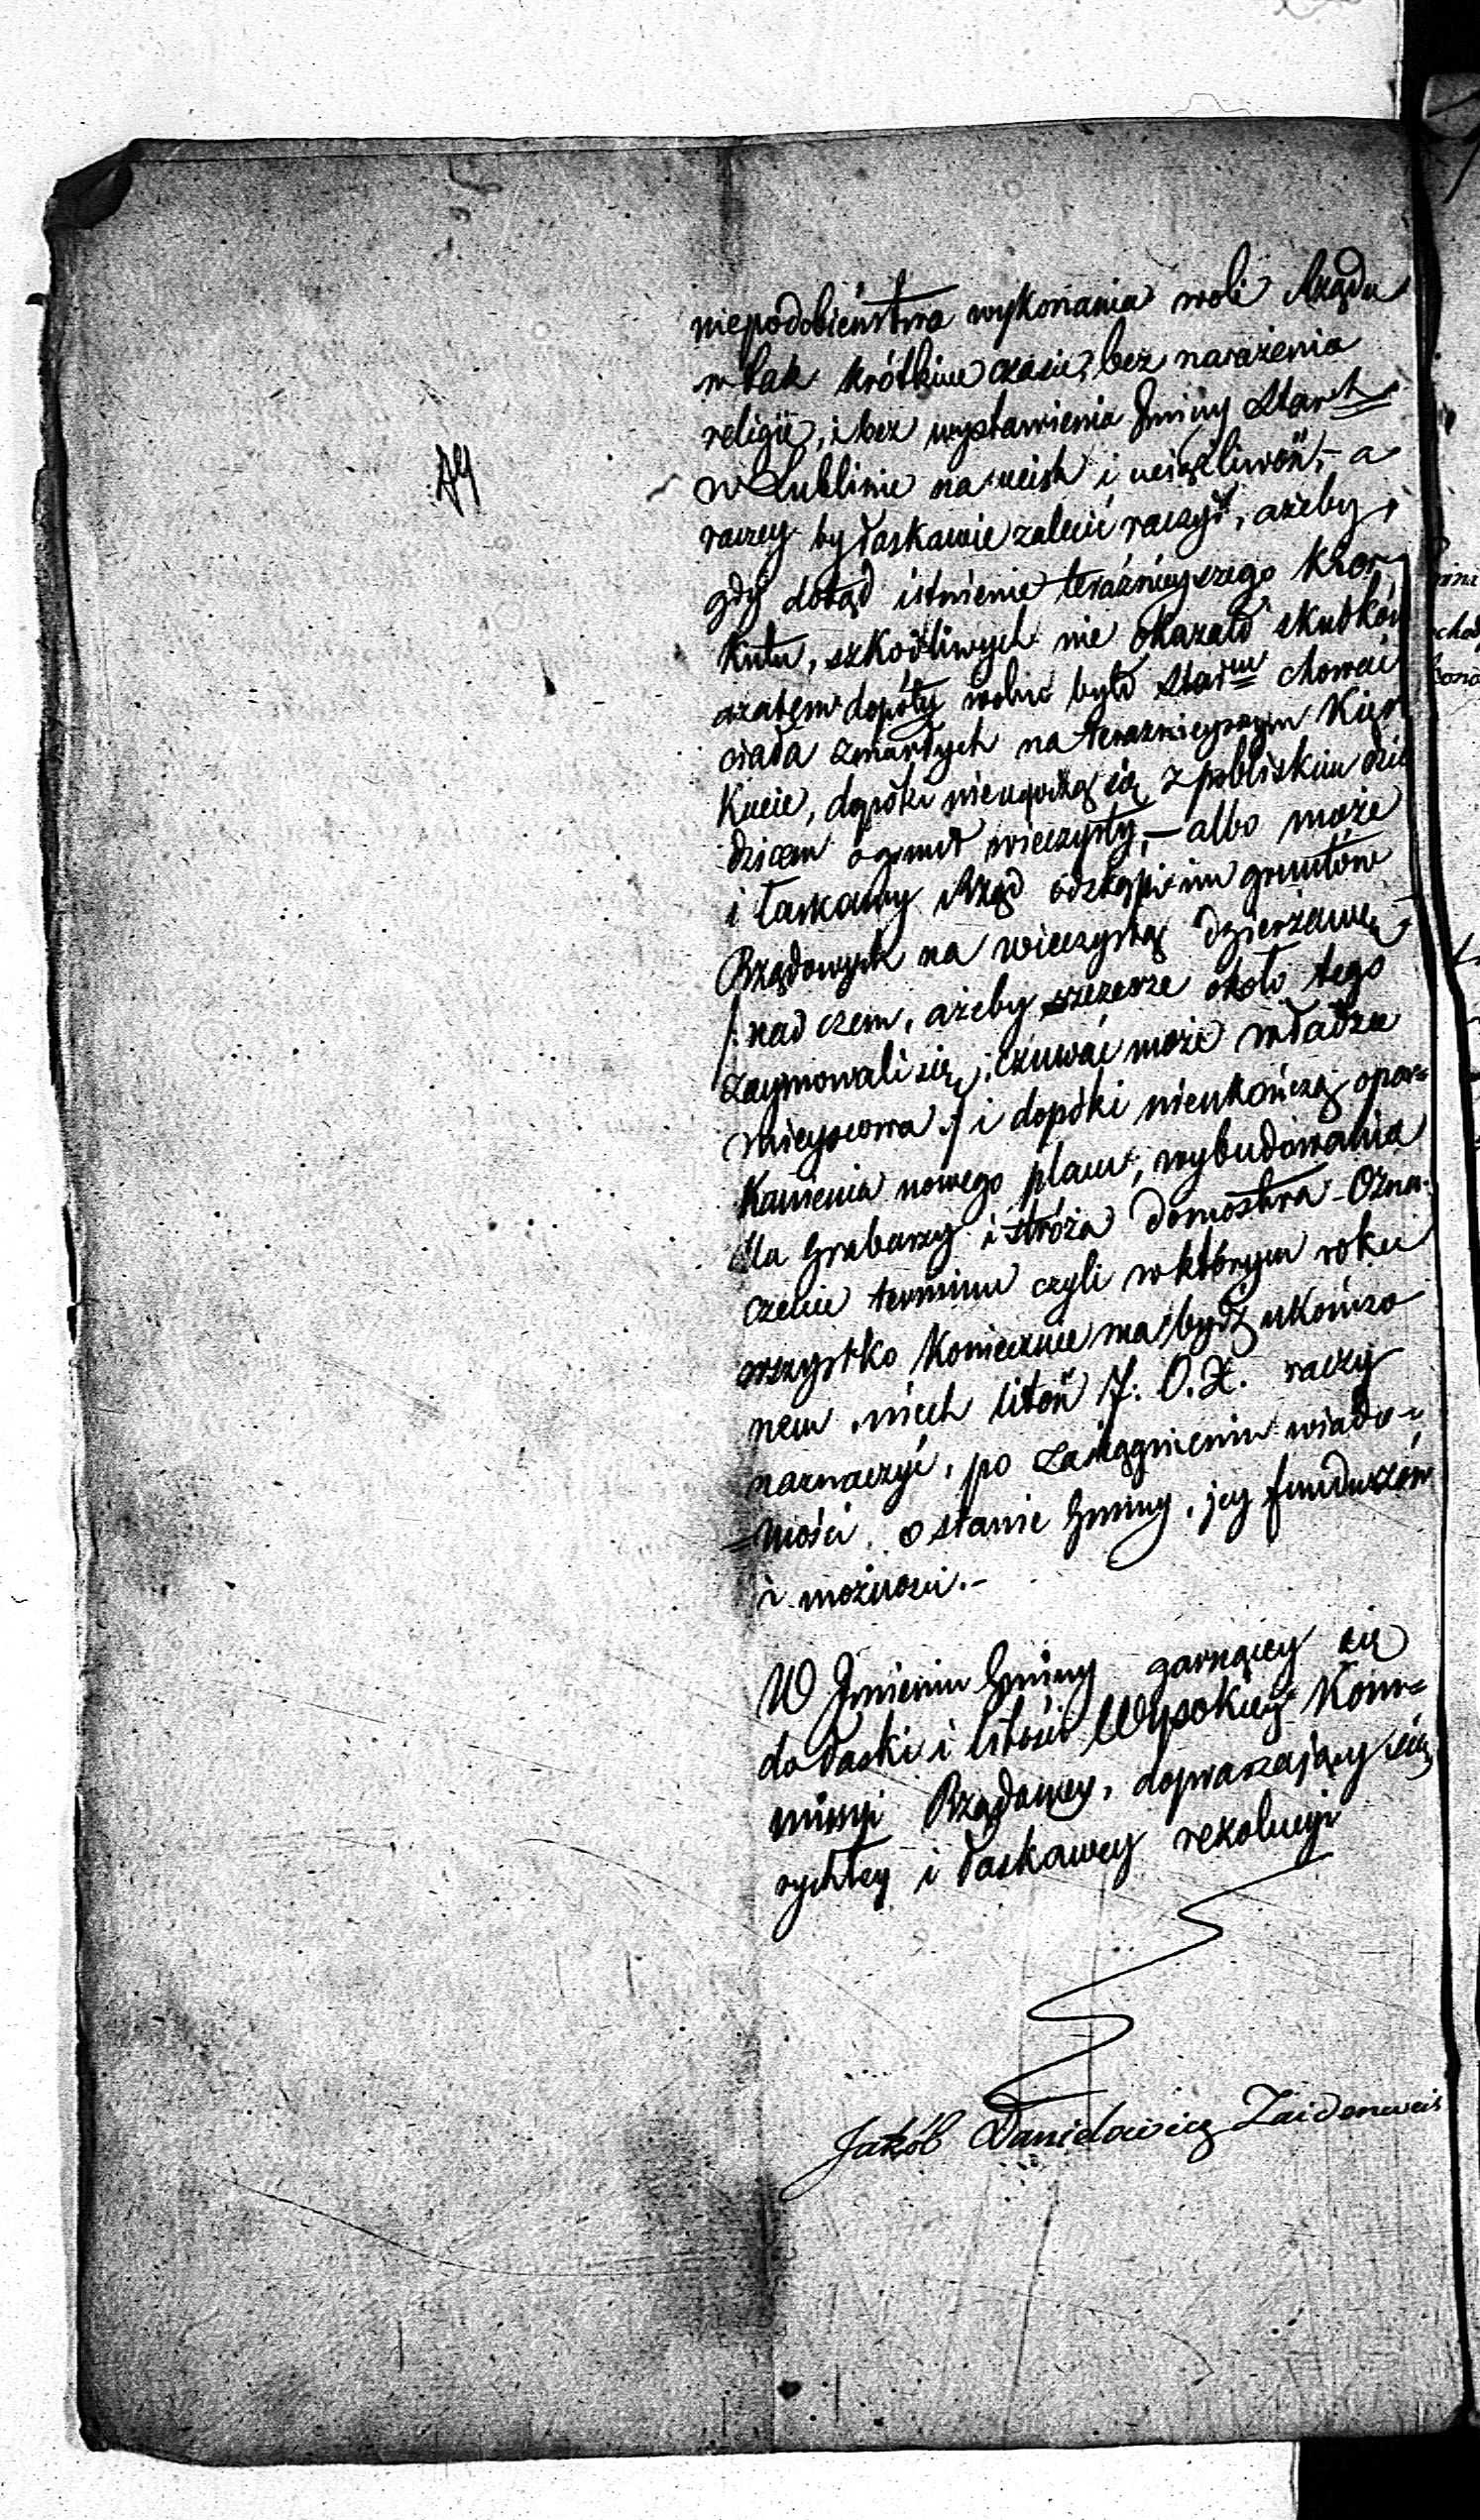 niepodobieństwa wykonania woli Rządu
w tak krótkim czasie, bez narażenia
religii, i bez wystawienia Gminy Star<sup>ch</sup>
w Lublinie na ucisk i uciążliwość, – a
raczey by łaskawie zalecić raczył, ażeby,
gdy dotąd istnienie teraźnieyszego Kier-
kutu, szkodliwych nie okazało skutków
azatem dopóty wolno było Star<sup>m</sup> chować
ciała zmarłych na teraznieyszym Kier
Kucie, dopóki nieugodzą się z pobliskim dzie
dzicem o grunt wieczysty, – albo może
i łaskawy Rząd odstąpi im gruntów
Rządowych na wieczystą dzierżawę
/: nad czem, ażeby szczerze około tego
zaymowali się, czuwać może władza
mieyscowa :/ i dopóki nieukończą opar=
kanienia nowego placu, wybudowania
dla Grabarzy i stróża domostwa – Ozna-
czenie terminu czyli w którym roku
wszystko koniecznie ma bydź ukończo
nem, niech litość J: O. X. raczy
naznaczyć, po zasiągnieniu wiado-
=mości o stanie Gminy, jey funduszów
i możności. –
W Jmieniu Gminy garnącey się
do łaski i litości Wysokiey Kom=
missyi Rządowey, dopraszający się
rychłey i łaskawey rezolucyi
Jakób Danielowicz Zaidenweis